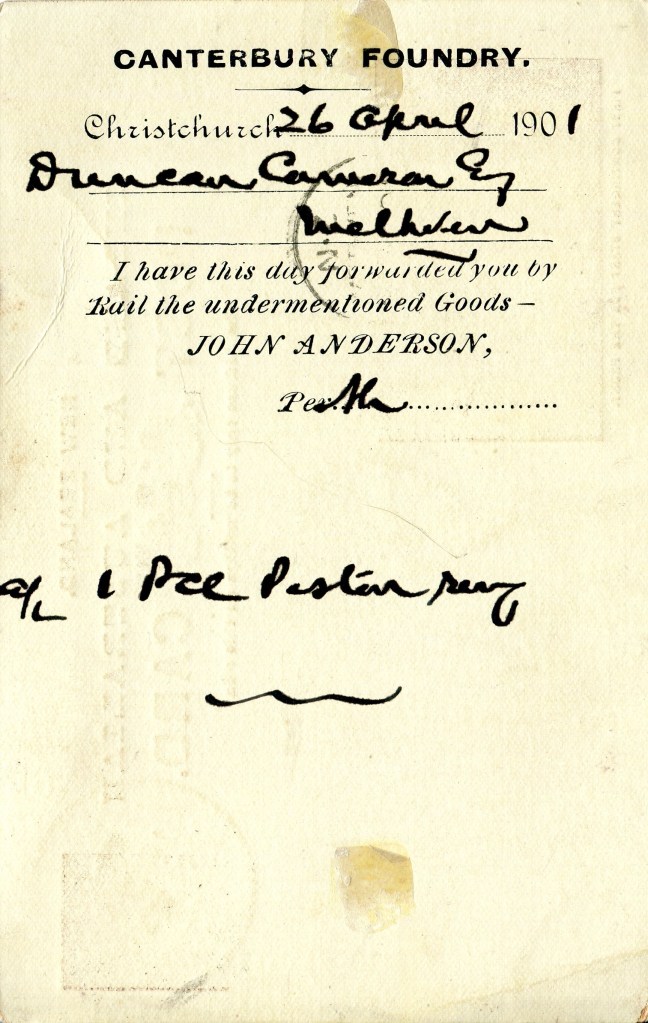 CANTERBURY FOUNDRY.
Christchurch 26 April 1901
Duncan Cameron Esq
Methven
I have this day forwarded you by
Rail the undermentioned Goods —
JOHN ANDERSON,
Per
1 Pcl Piston